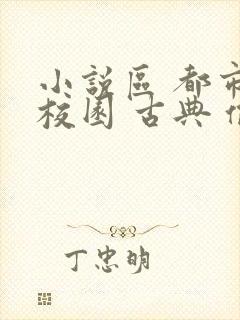 小說區 都市
校園 古典
丁忠明